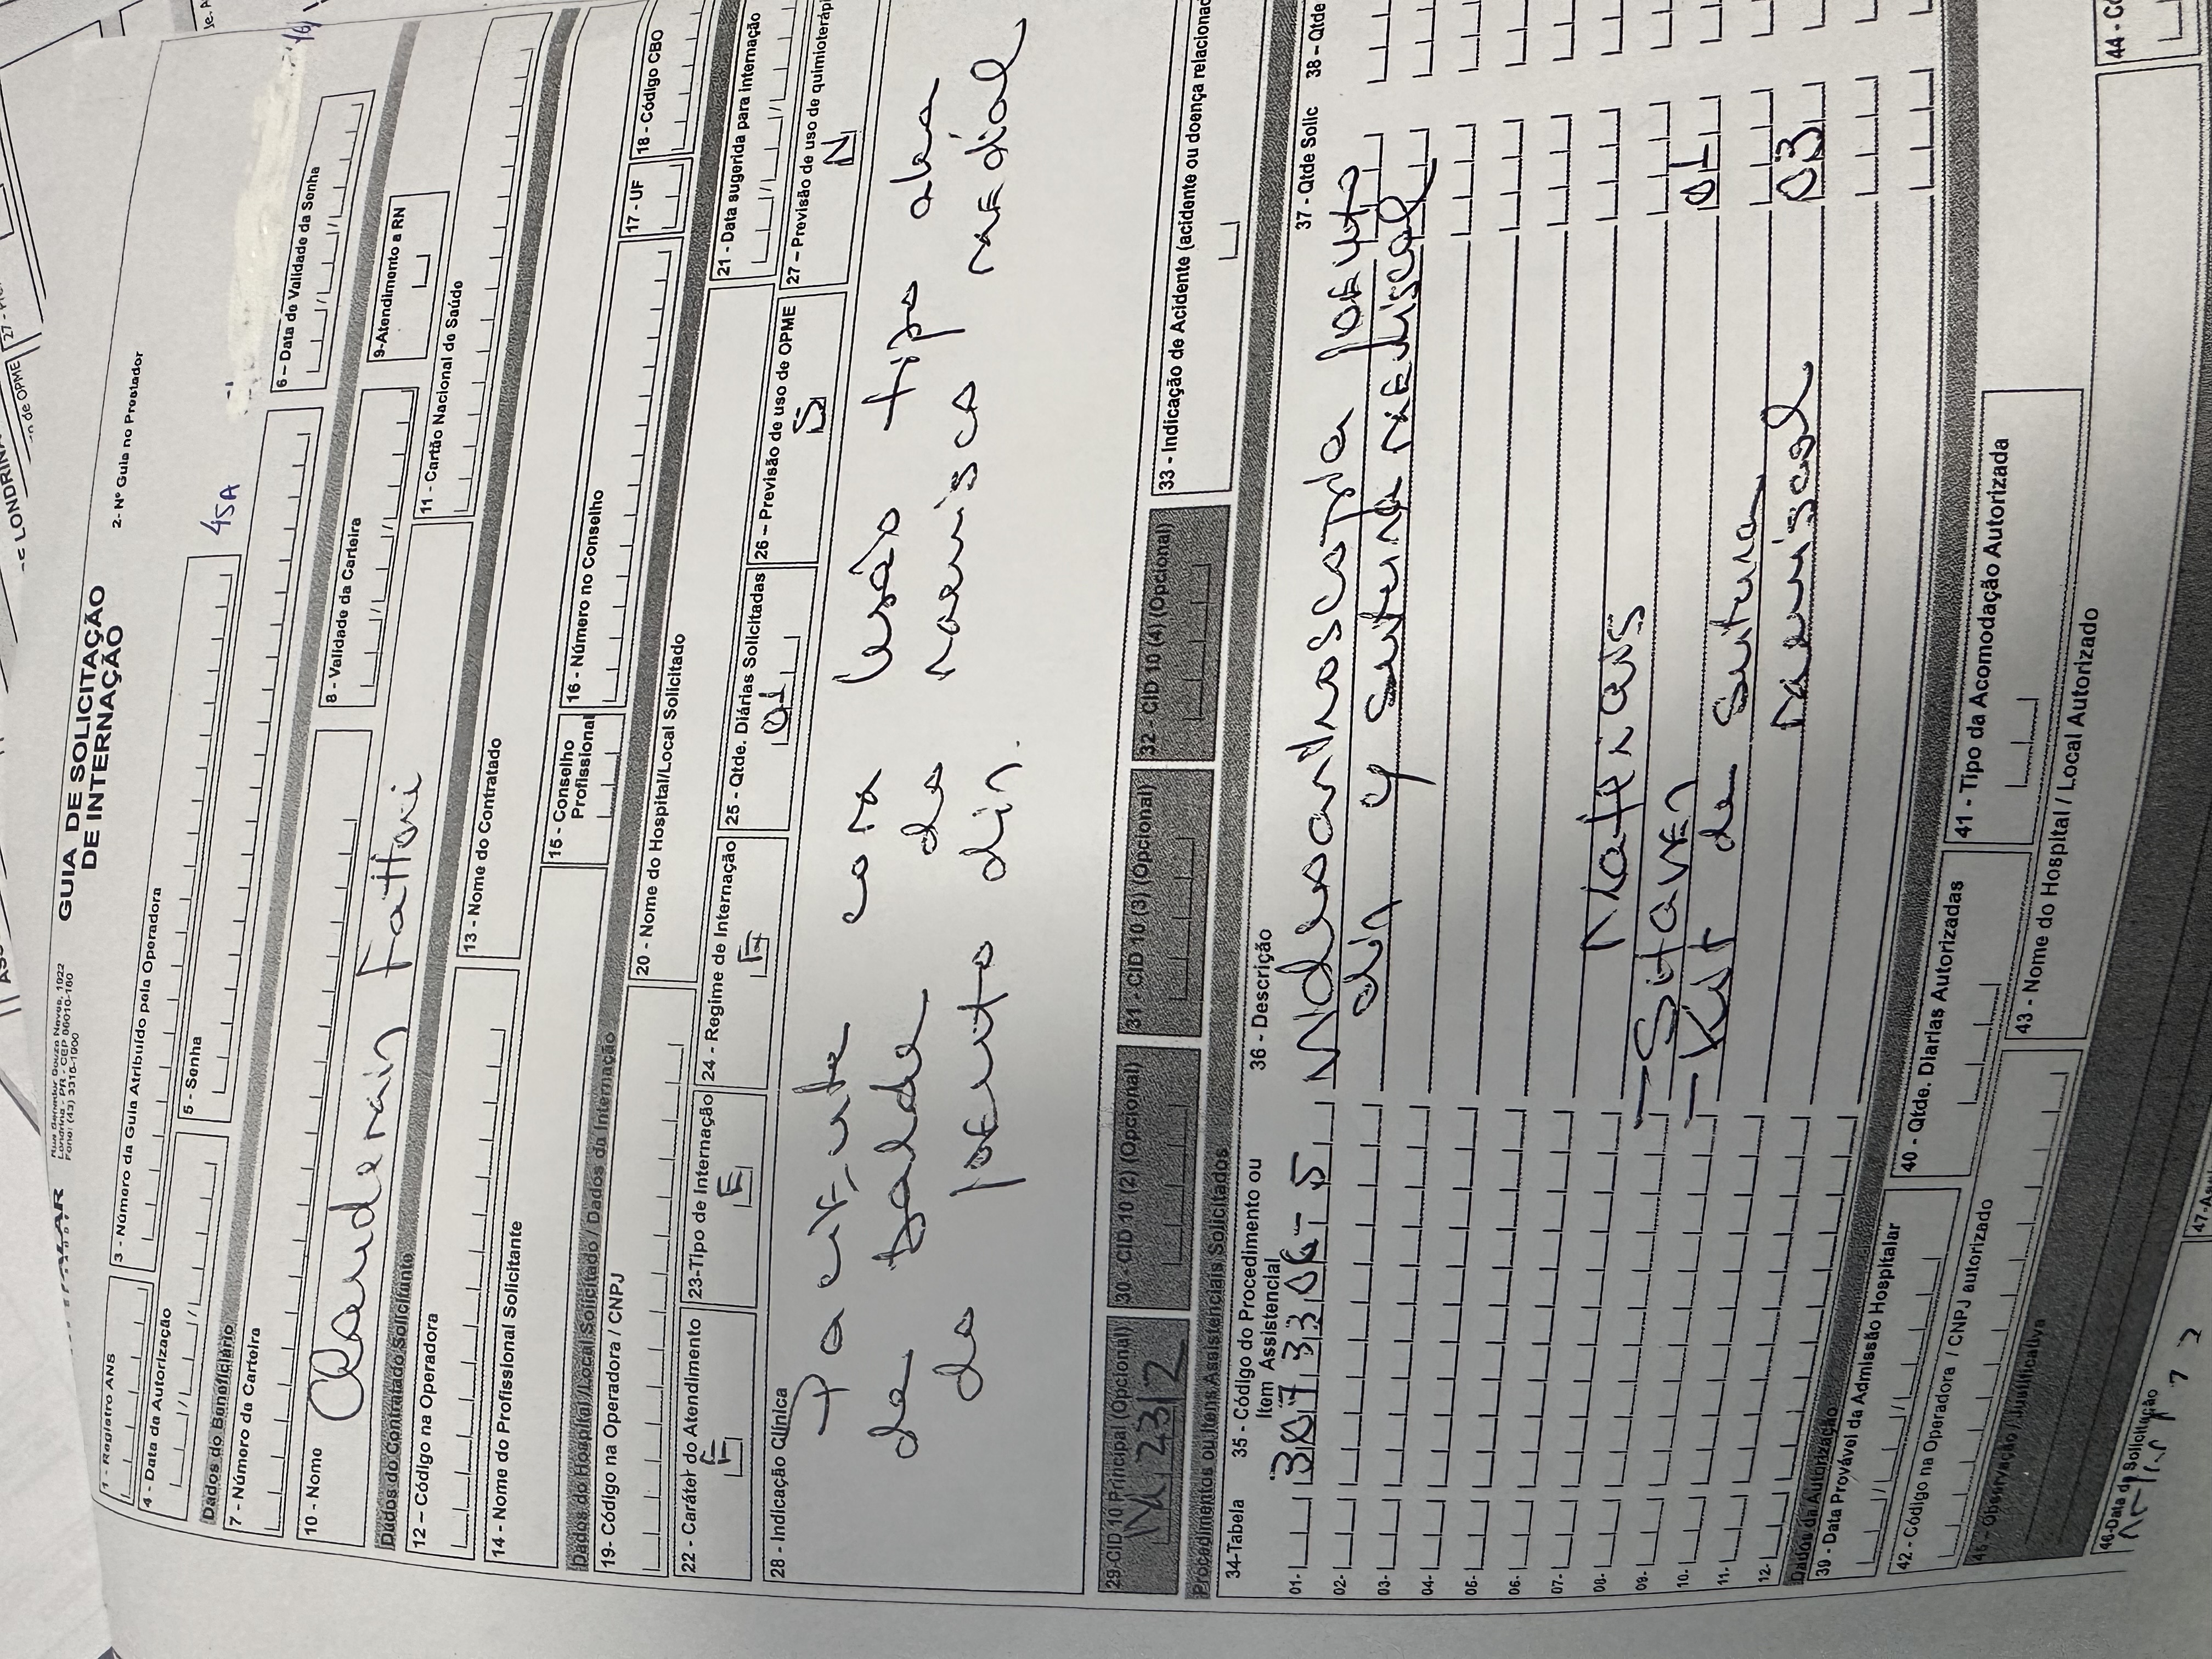 ASS
E LONDRINA
de OPME
27 -
ALAR
Rua Senador Souza Naves, 1022
Londrina - PR - CEP 86010-160
Fone: (43) 3315-1900
GUIA DE SOLICITAÇÃO
DE INTERNAÇÃO
2- Nº Guia no Prestador
1 - Registro ANS
3 - Número da Guia Atribuído pela Operadora
4 - Data da Autorização
5 - Senha
45A
6 – Data de Validade da Senha
Dados do Beneficiário
7 - Número da Carteira
8 - Validade da Carteira
9-Atendimento a RN
10 - Nome
Claudernir Fattori
11 - Cartão Nacional de Saúde
Dados do Contratado Solicitante
12 – Código na Operadora
13 - Nome do Contratado
14 - Nome do Profissional Solicitante
15 - Conselho
Profissional
16 - Número no Conselho
17 - UF
18 - Código CBO
Dados do Hospital /Local Solicitado / Dados da Internação
19- Código na Operadora / CNPJ
20 - Nome do Hospital/Local Solicitado
21 - Data sugerida para internação
22 - Caráter do Atendimento
E
23-Tipo de Internação
E
24 - Regime de Internação
E
25 - Qtde. Diárias Solicitadas
01
26 – Previsão de uso de OPME
S
27 – Previsão de uso de quimioteráp
N
28 - Indicação Clínica
Paciente com lesão tipo alça
de balde do menisco medial
do joelho dir.
29-CID 10 Principal (Opcional)
M 23 2
30 - CID 10 (2) (Opcional)
31 - CID 10 (3) (Opcional)
32 - CID 10 (4) (Opcional)
33 - Indicação de Acidente (acidente ou doença relacionad
Procedimentos ou Itens Assistenciais Solicitados
34-Tabela
35 - Código do Procedimento ou
Item Assistencial
36 - Descrição
37 - Qtde Solic
38 – Qtde
01- 3073306-5 Videoartroscopia joelho
02- dir sutura meniscal
03-
04-
05-
06-
07- Materiais
08- - Shaver 01
09- - Kit de sutura
10- meniscal 03
11-
12-
Dados da Autorização
39 - Data Provável da Admissão Hospitalar
40 - Qtde. Diarias Autorizadas
41 - Tipo da Acomodação Autorizada
42 - Código na Operadora / CNPJ autorizado
43 - Nome do Hospital / Local Autorizado
44 - Có
45 – Observação / Justificativa
46-Data da Solicitação
47-Ass